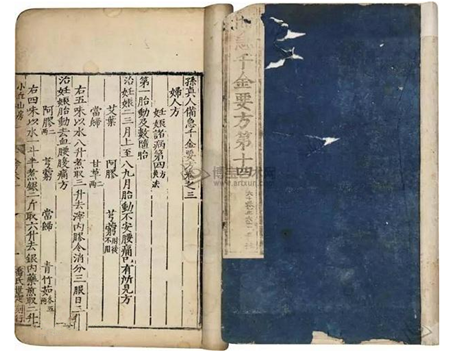 孫真人備急千金要方卷之三
婦人方
妊娠諸病第四
第一胎動及數墮胎
治妊娠二三月上至八九月胎動不安腰痛已有所見方
艾葉 阿膠 芎藭
當歸 甘草
右五味以水八升煮取三升去滓內膠令消分三服日三
治妊娠胎動去血腰腹痛方
阿膠 芎藭 當歸 青竹茹
右四味以水一斗半煮銀二斤取六升去銀內藥煎取二升
小丘山房
千金要方第十四
博宝艺术网
www.artxun.com